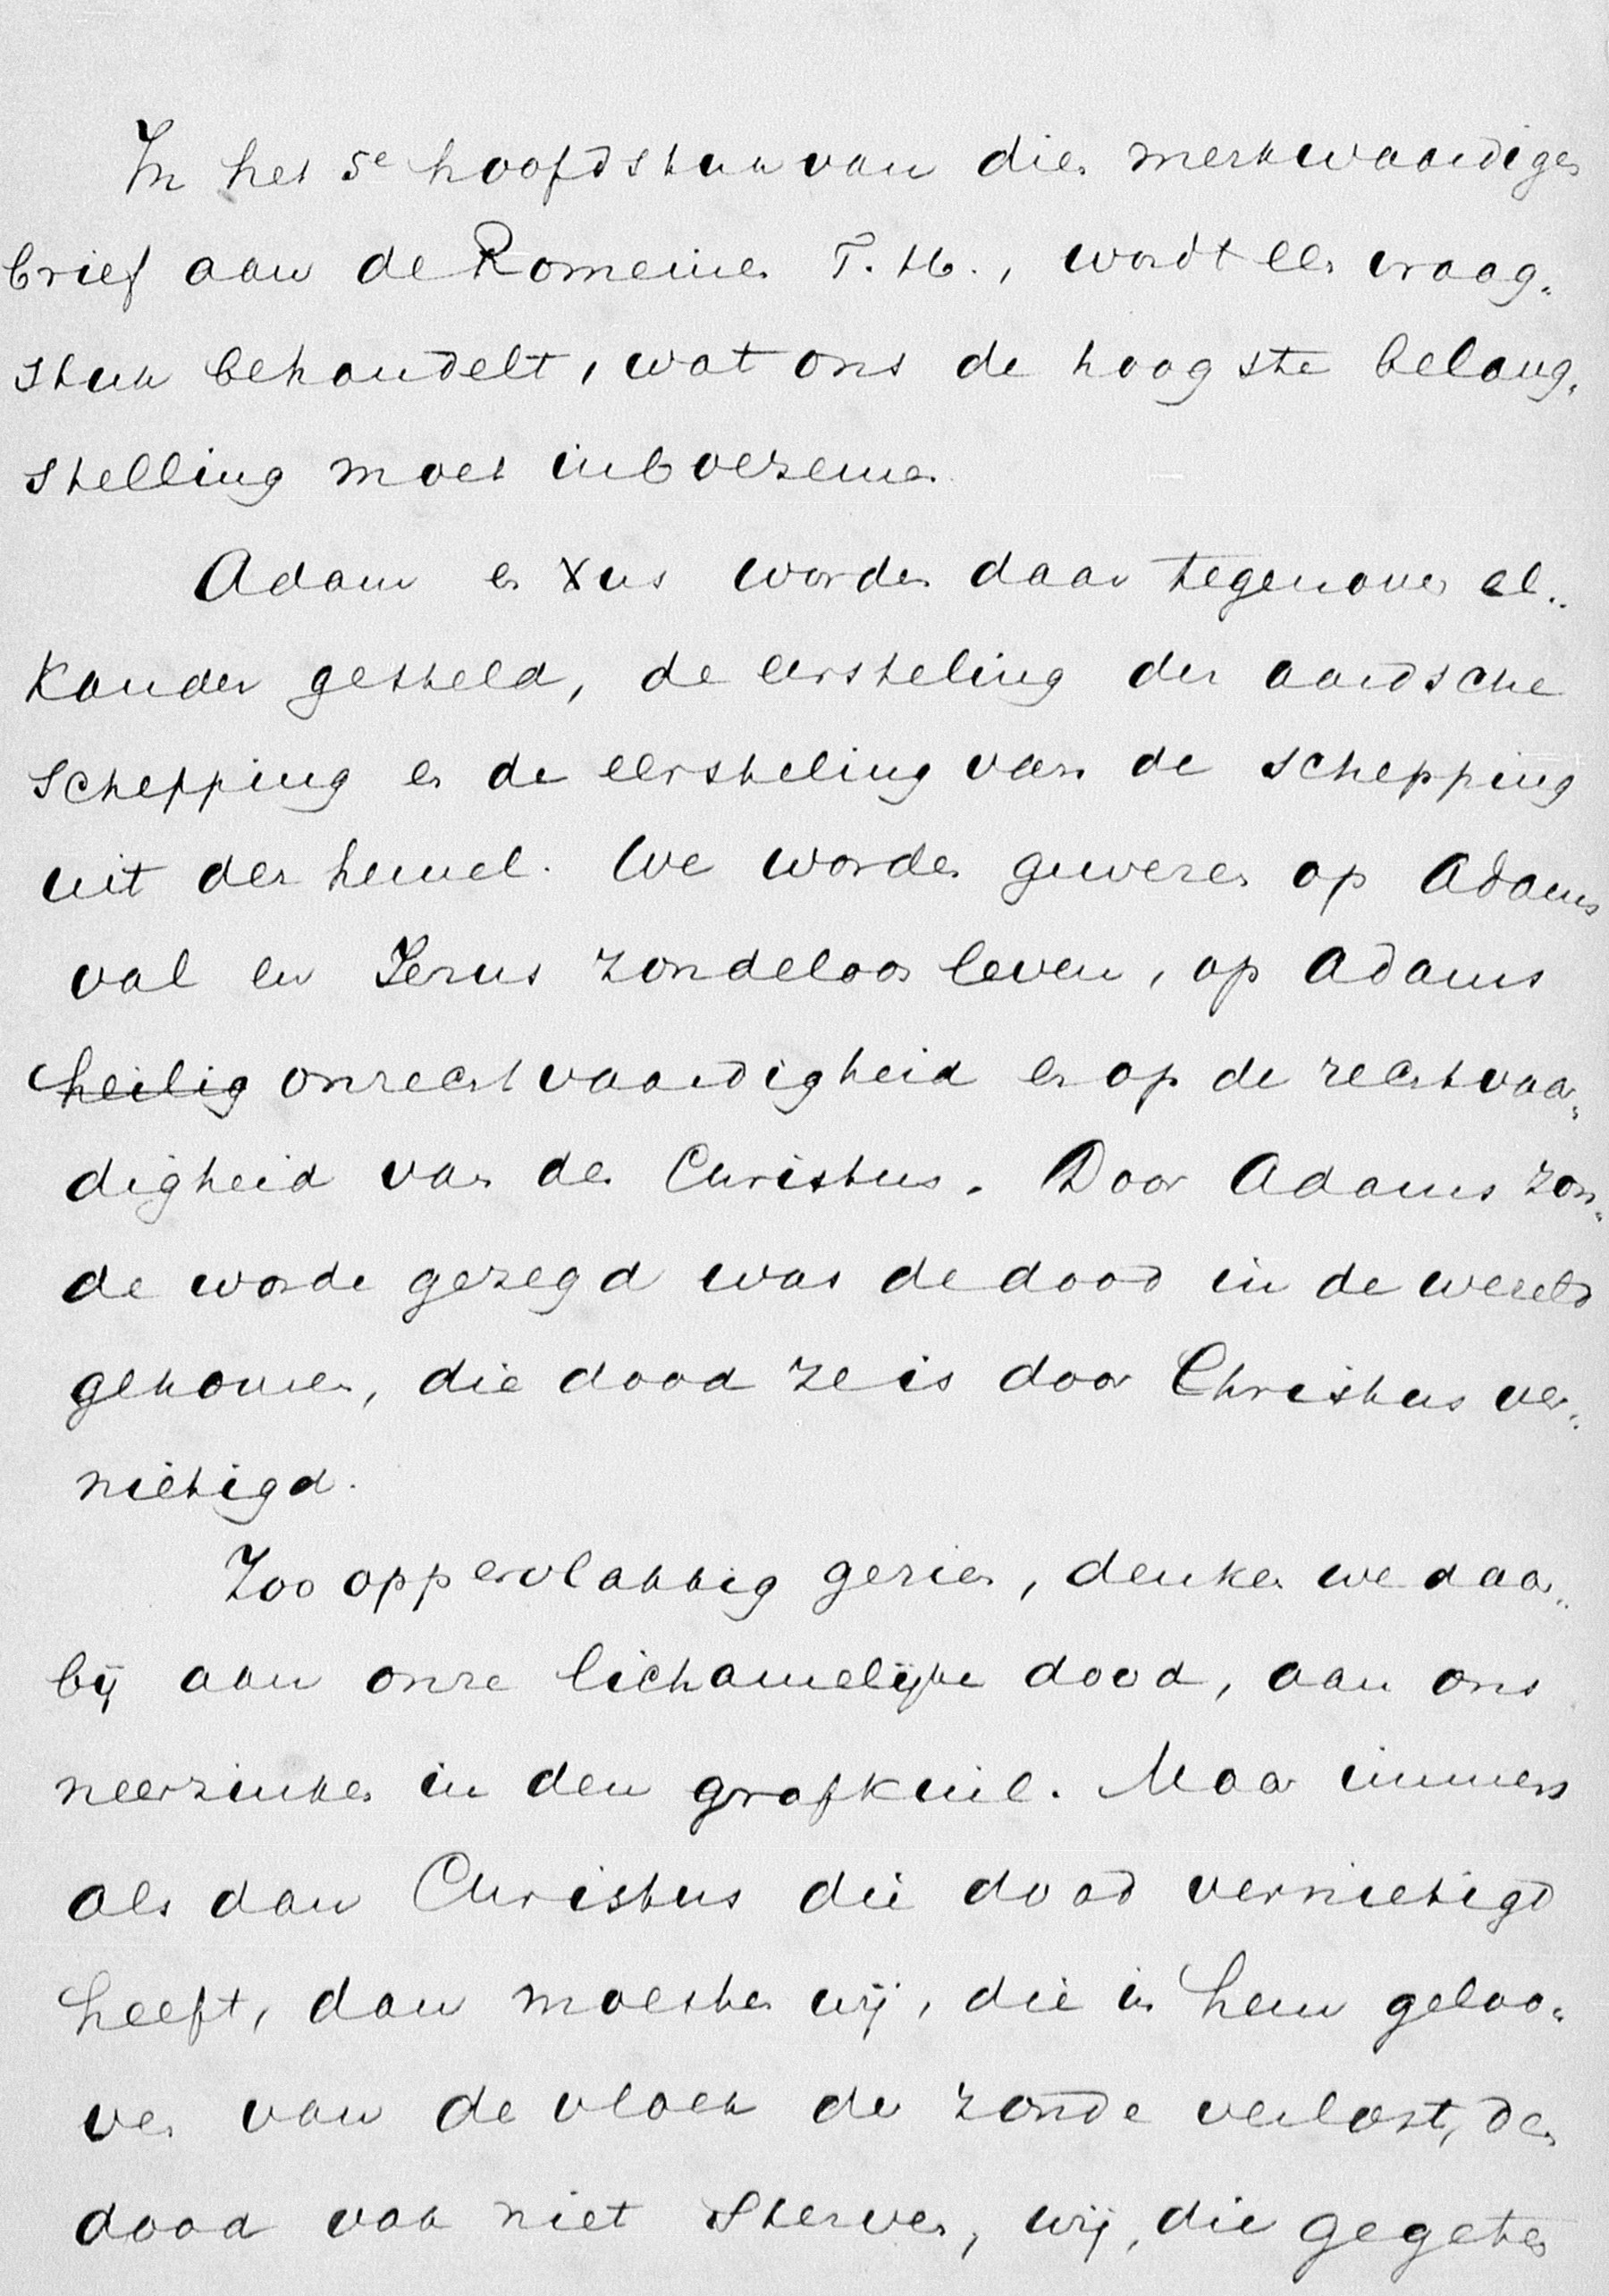 In het 5e hoofdstuk van dien merkwaardigen
brief aan de Romeinen T. H., wordt een vraag-
stuk behandelt, wat ons de hoogste belang-
stelling moet inboezemen.
Adam en Xus worden daar tegenover el-
kander gesteld, de eersteling der aardsche
schepping en de eersteling van de schepping
uit den hemel. We worden gewezen op Adams
val en Jezus zondeloos leven, op Adams
heilig onrechtvaardigheid en op de rechtvaar-
digheid van den Christus. Door Adams zon-
de worde gezegd was de dood in de wereld
gekomen, die dood ze is door Christus ver-
nietigd.
Zoo oppervlakkig gezien, denken we daar-
bij aan onze lichamelijke dood, aan ons
neerzinken in den grafkuil. Maar immers
als dan Christus die dood vernietigd
heeft, dan moesten wij, die in hem geloo-
ven van de vloek der zonde verlost, den
dood ook niet sterven, wij, die gegeten